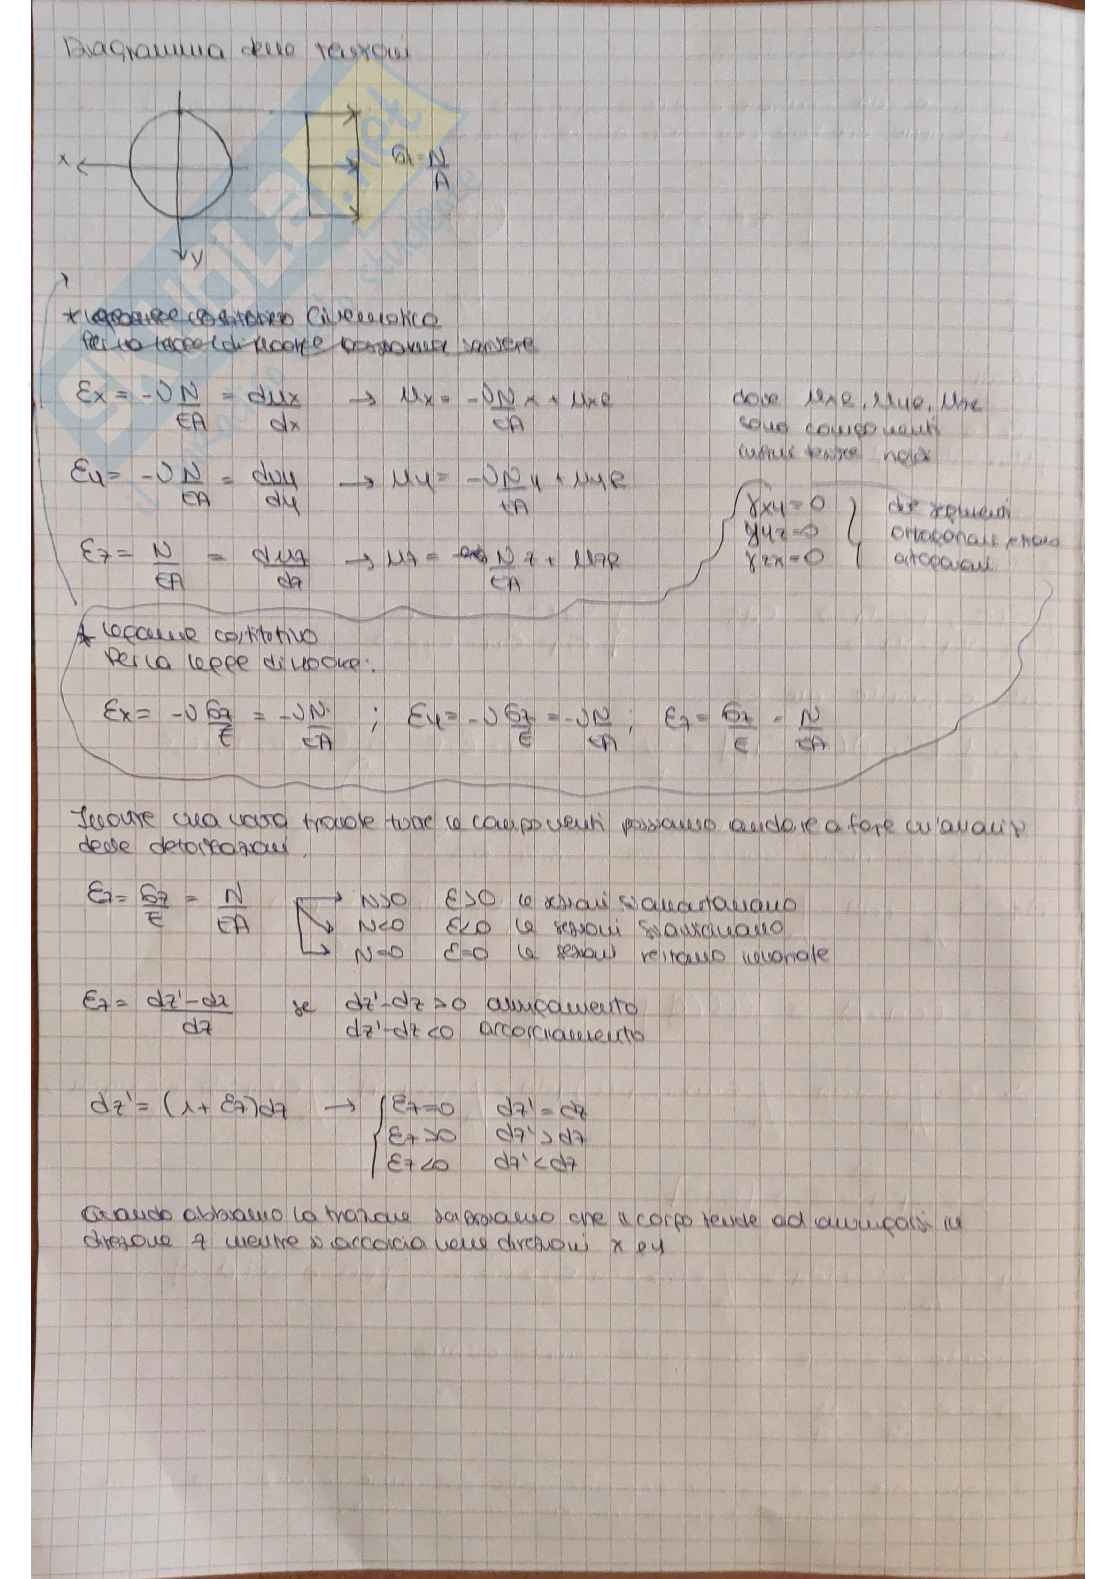 Diagramma delle tensioni
x
σz = N/A
y
* Legame costitutivo Cinematica
Per la legge di Hooke possiamo scrivere
εx = -υN/EA = dux/dx → ux = -υN/EA x + uxR
dove uxR, uyR, uzR
sono componenti
εy = -υN/EA = duy/dy → uy = -υN/EA y + uyR
γxy=0
γyz=0
γzx=0
due segmenti
ortogonali
ortogonali
εz = N/EA = duz/dz → uz = N/EA z + uzR
* Legame costitutivo
Per la legge di Hooke:
εx = -υσz/E = -υN/EA ; εy = -υσz/E = -υN/EA ; εz = σz/E = N/EA
Inoltre una volta trovate tutte le componenti possiamo andare a fare un'analisi
delle deformazioni.
εz = σz/E = N/EA → N>0 ε>0 le sezioni si allontanano
N<0 ε<0 le sezioni si avvicinano
N=0 ε=0 le sezioni restano
εz = dz'-dz/dz se dz'-dz>0 allungamento
dz'-dz<0 accorciamento
dz' = (1+εz)dz → { εz=0 dz'=dz
εz>0 dz'>dz
εz<0 dz'<dz
Quando abbiamo la trazione sappiamo che il corpo tende ad allungarsi in
direzione z mentre si accorcia nelle direzioni x e y
SKUOLA.net